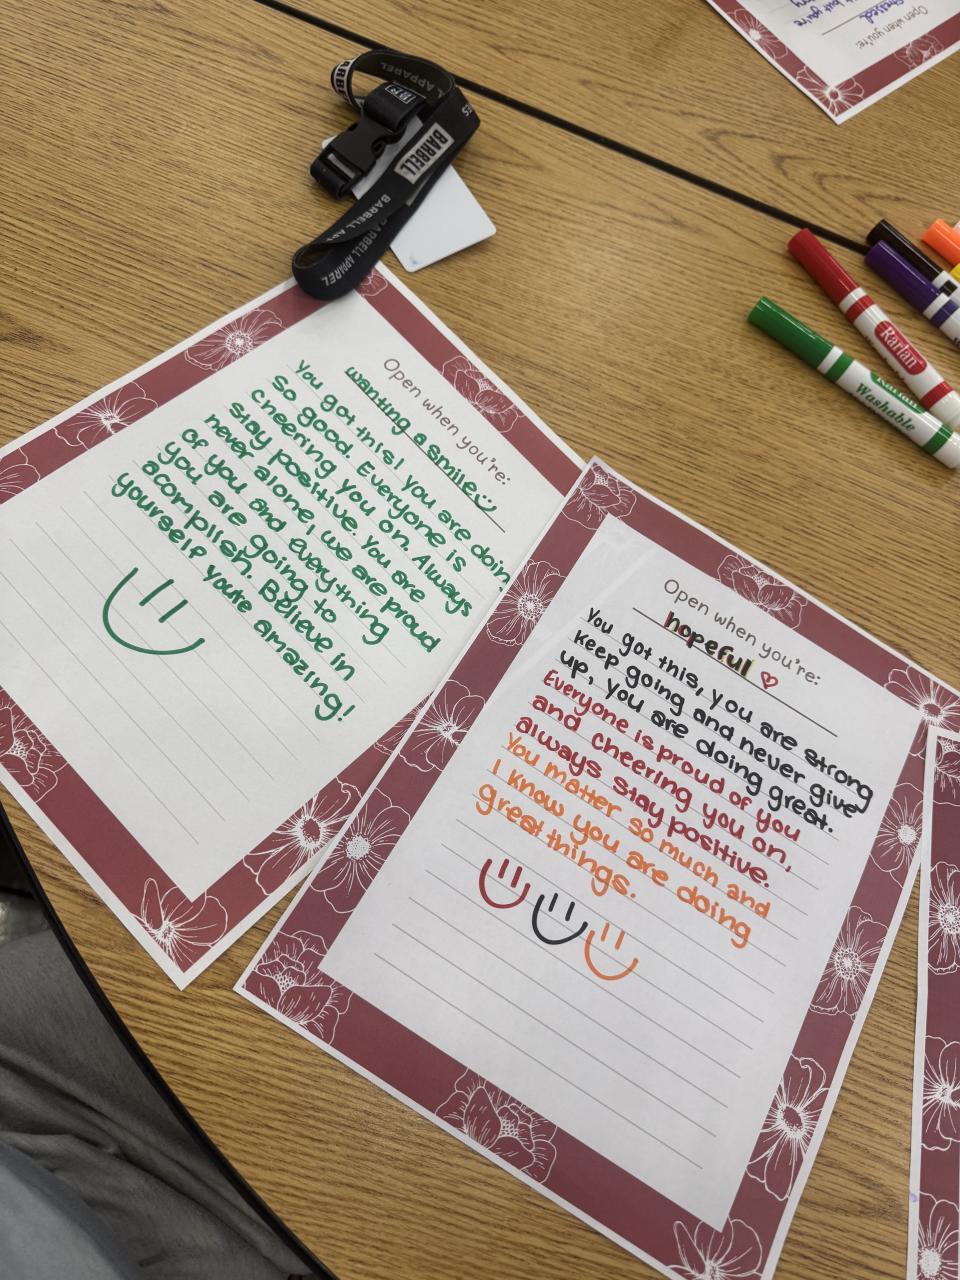 Open when you're:
wanting a smile
You got this! you are doin
So good. Everyone is
cheering you on. Always
stay positive. You are
never alone, we are proud
of you and everything
you are going to
accomplish. Believe in
yourself you're amazing!
Open when you're:
hopeful
You got this, you are strong
keep going and never give
up, you are doing great.
Everyone is proud of you
and cheering you on,
always stay positive.
You matter so much and
I know you are doing
great things.
Open when you're:
Stressed
but you're
BARBELL
L APPAREL
BARBELL APPAREL
BARBELL APPAREL
Karlan
Washable